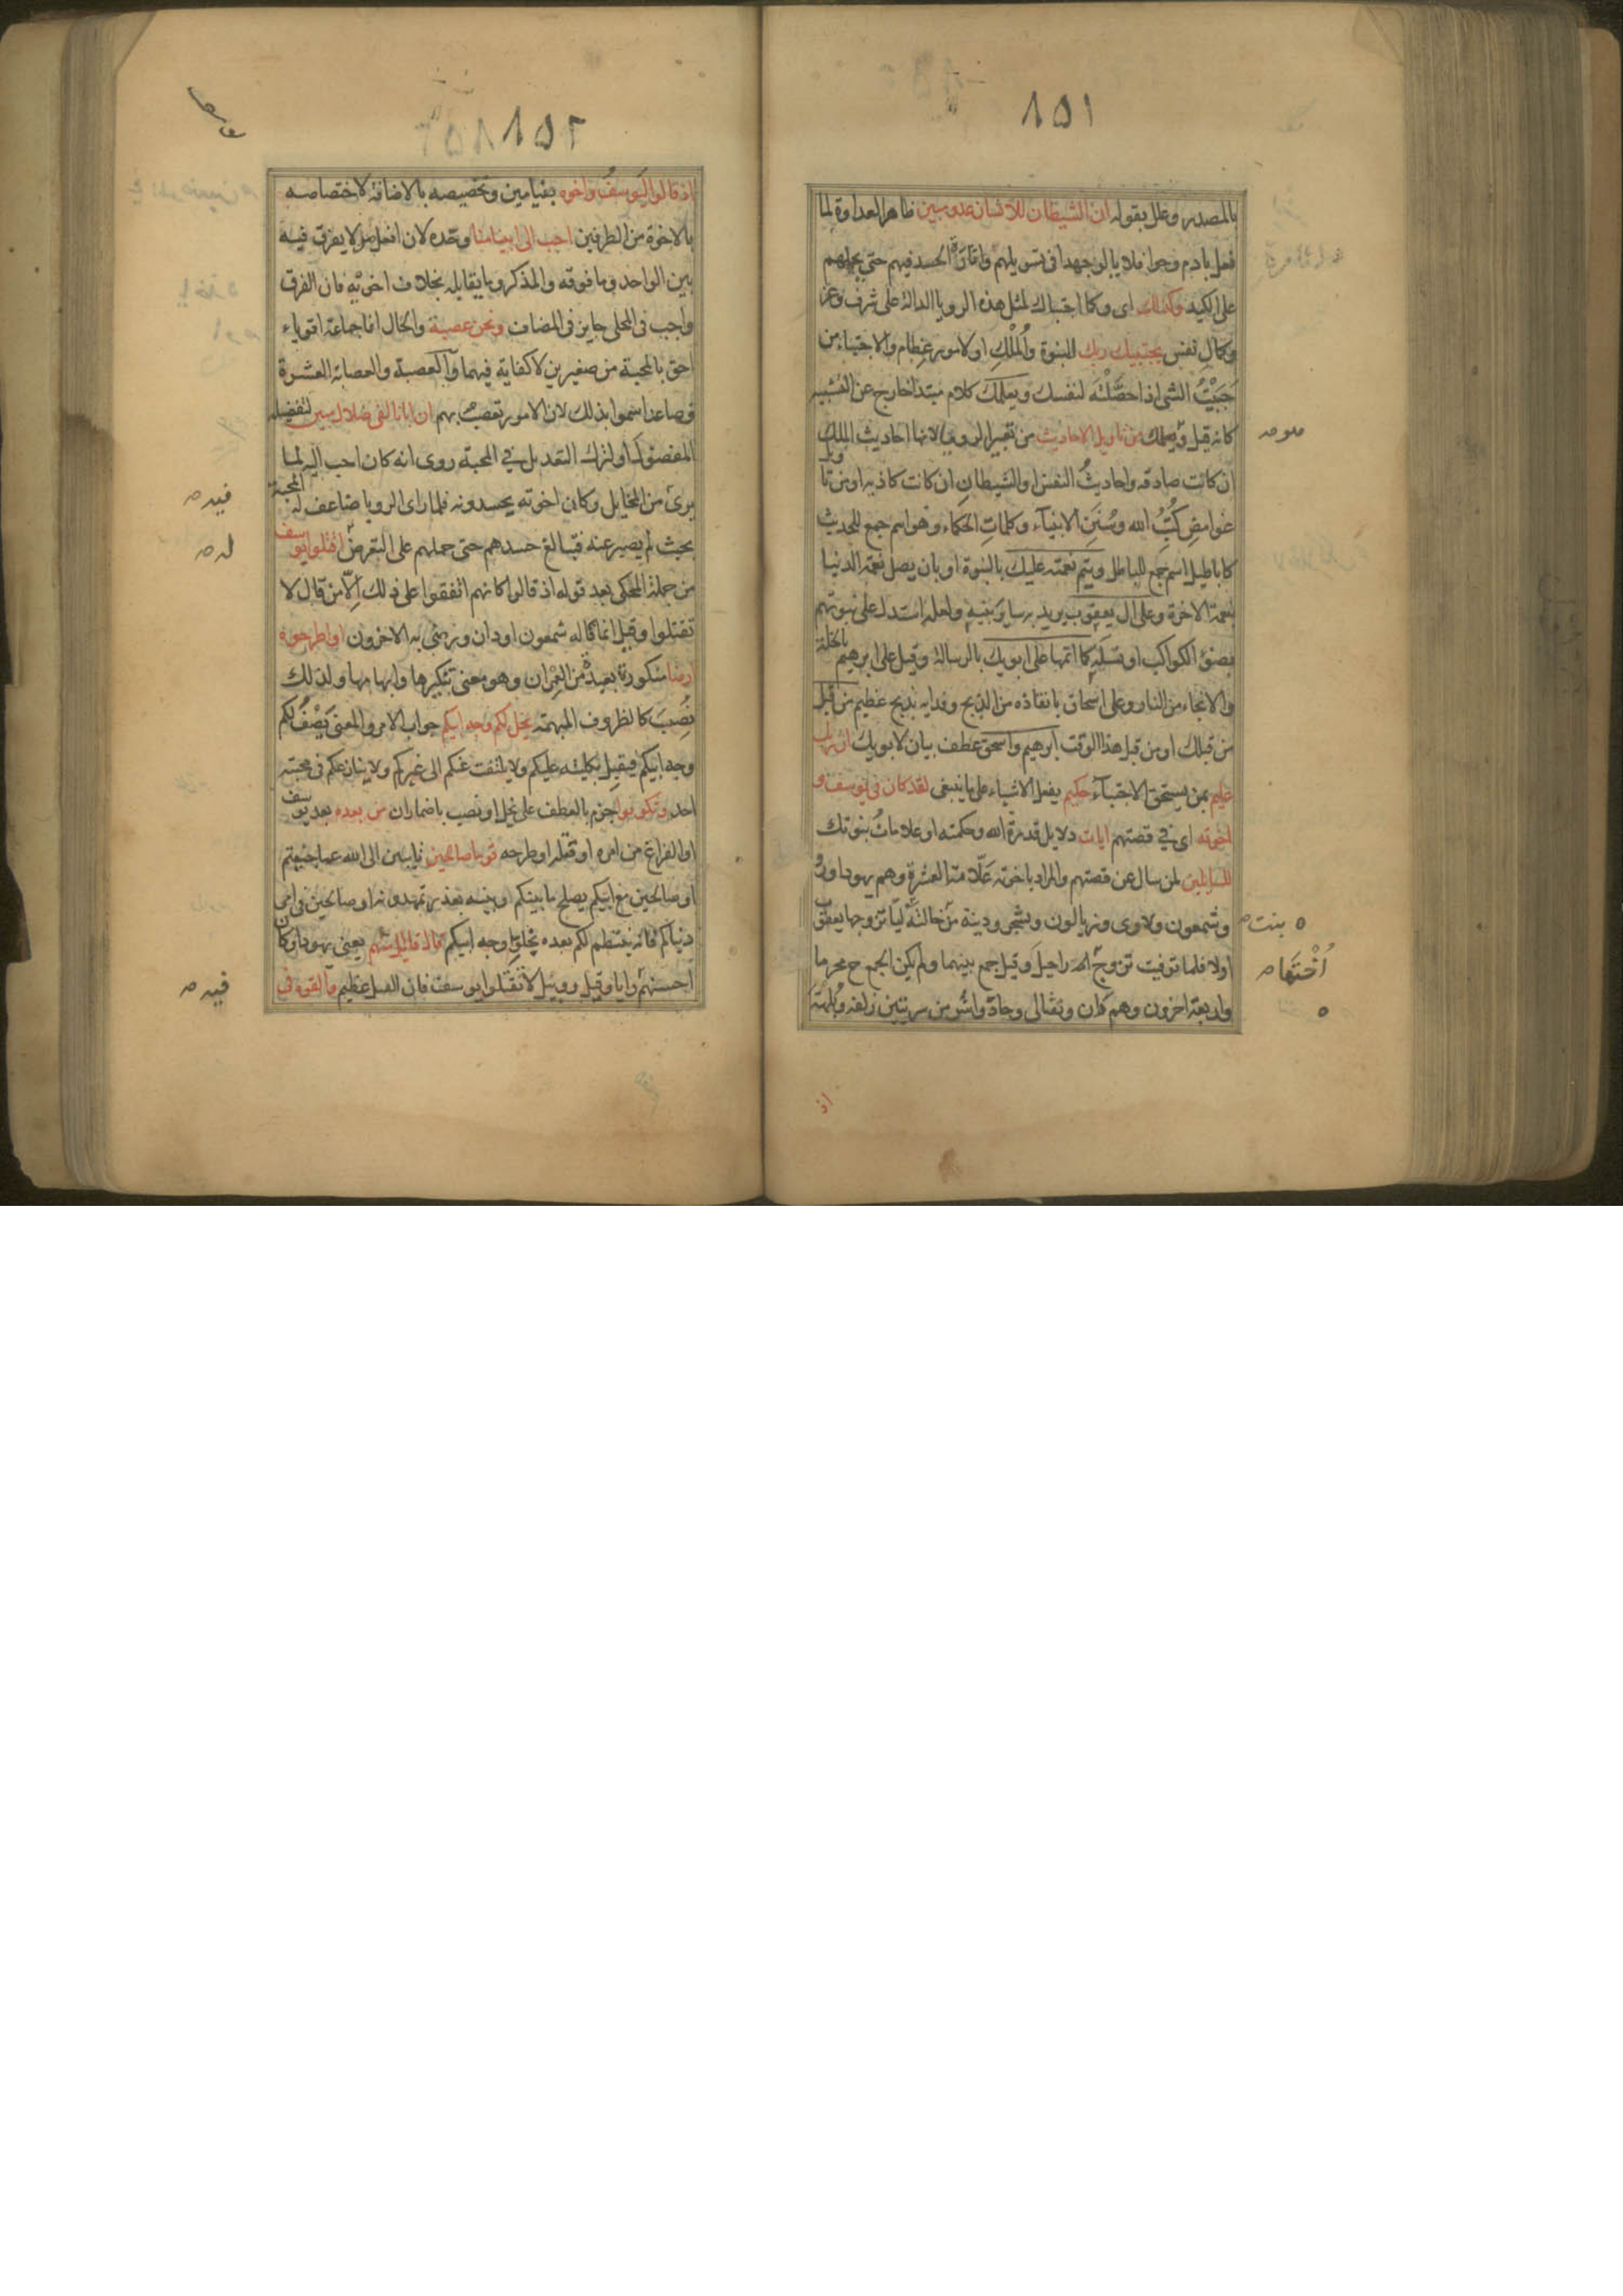 ١٥١
بالمصدر وعلل بقوله ان الشيطان للانسان عدو مبين ظاهر العداوة لما
فعل بادم وحوا فلا يالو جهدا في تسويلهم واثارة الحسد فيهم حتى يحملهم
على الكيد وكذلك اى وكما اجتباك لمثل هذه الرويا الدالة على شرف وعز
وكمال نفس يجتبيك ربك للنبوة والملك او لامور عظام والاجتباء من
جبيت الشى اذا حصلته لنفسك ويعلمك كلام مبتدا خارج عن التشبيه
كانه قيل وهو يعلمك من تاويل الاحاديث من تعبير الرويا لانها احاديث الملك
ان كانت صادقه واحاديث النفس او الشيطان ان كانت كاذبه او من تاويل
غوامض كتب الله وسنن الانبيآء وكلمات الحكماء وهو اسم جمع للحديث
كاباطيل اسم جمع للباطل ويتم نعمته عليك بالنبوة او بان يصل نعمة الدنيا
بنعمة الاخرة وعلى ال يعقوب يريد به ساير بنيه ولعله استدل على نبوتهم
بضوء الكواكب او نسله كما اتمها على ابويك بالرسالة وقيل على ابرهيم بالخلة
والانجاء من النار وعلى اسحاق بانقاذه من الذبح وفدايه بذبح عظيم من قبل
من قبلك او من قبل هذا الوقت ابرهيم واسحق عطف بيان لابويك ان ربك
عليم بمن يستحق الاجتبآء حكيم يفعل الاشياء على ما ينبغى لقد كان في يوسف و
اخوته اى في قصتهم ايات دلايل قدرة الله وحكمته او علامات نبوتك
للسايلين لمن سال عن قصتهم والمراد باخوته علاته العشرة وهم يهودا و
وشمعون ولاوى وزبالون ويشجر ودينة من خالته ليا تزوجها يعقوب
بنت
اولا فلما توفيت تزوج راحيل وقيل جمع بينهما ولم يكن الجمع ح محرما
أختها
واربعة اخرون وهم دان ونفتالى وجاد واشر من سريتين زلفه وبلهة
اذ
١٥٢
اذ قالوا ليوسف واخوه بنيامين وتخصيصه بالاضافة لاختصاصه
بالاخوة من الطرفين احب الى ابينا منا وحده لان افعل من لا يفرق فيه
بين الواحد وما فوقه والمذكر وما يقابله بخلاف اخوته فان الفرق
واجب في المحلى جايز في المضاف ونحن عصبة والحال انا جماعة اقوياء
احق بالمحبة من صغيرين لا كفاية فيهما والعصبة والعصابة العشرة
فصاعدا سموا بذلك لان الامور تعصب بهم ان ابانا لفى ضلال مبين لتفضيله
المفضول او لترك التعديل في المحبة روى انه كان احب اليه لما
يرى من المخايل وكان اخوته يحسدونه فلما راى الرويا ضاعف له المحبة
فيه
بحيث لم يصبر عنه فتبالغ حسدهم حتى حملهم على التعرض اقتلوا يوسف
له
من جملة المحكى بعد قوله اذ قالوا كانهم اتفقوا على ذلك الّا من قال لا
تقتلوا وقيل انما قاله شمعون او دان ورضى به الاخرون او اطرحوه
ارضا منكورة بعيدة من العمران وهو معنى تنكيرها وابهامها ولذلك
نصب كالظروف المبهمة يخل لكم وجه ابيكم جواب الامر والمعنى يصف لكم
وجه ابيكم فيقبل بكليته عليكم ولا يلتفت عنكم الى غيركم ولا ينازعكم في محبته
احد وتكونوا جزم بالعطف على يخل او نصب باضمار ان من بعده بعد يوسف
او الفراغ من امره او قتله او طرحه قوما صالحين تايبين الى الله عما جنيتم
او صالحين مع ابيكم يصلح ما بينكم وبينه بعذر تمهدونه او صالحين في امر
دنياكم فانه ينتظم لكم بعده بخلو وجه ابيكم قال قايل منهم يعنى يهودا وكان
احسنهم رايا وقيل روبيل لا تقتلوا يوسف فان القتل عظيم والقوه فى
فيه